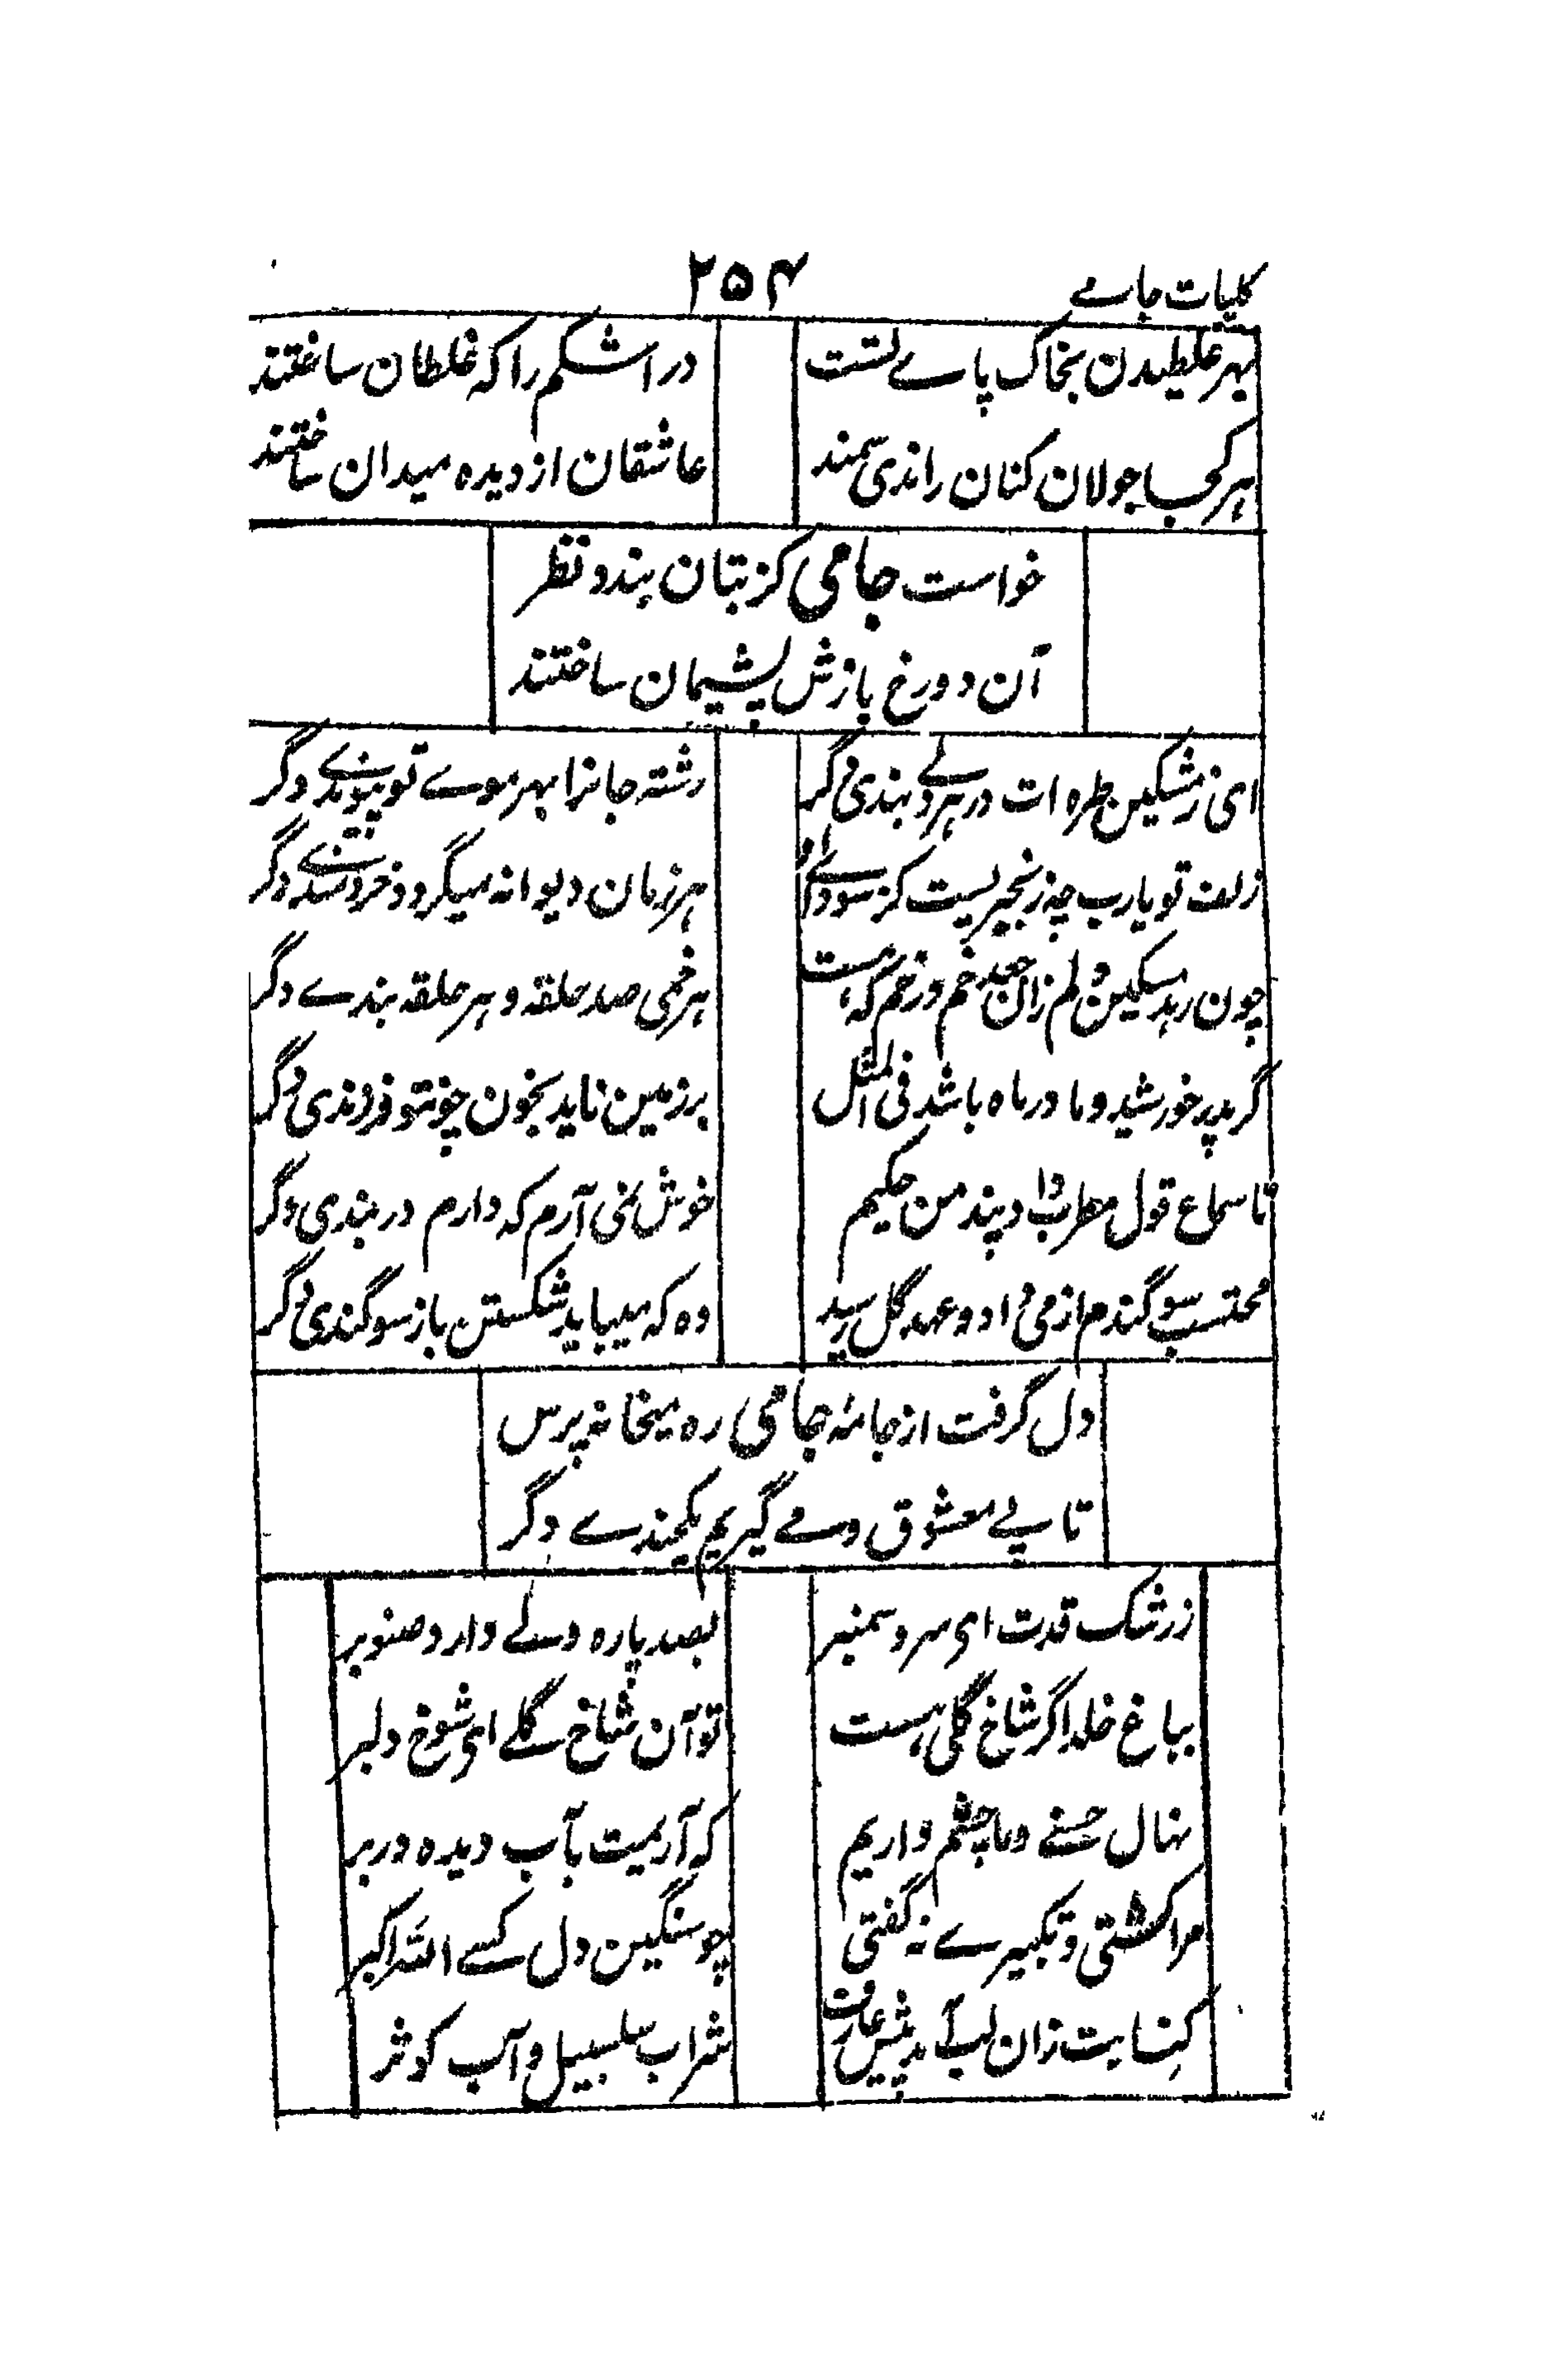 کلیات جامے
۲۵۴
بہر غلطیدن بخاک پاے تست
در اشکم را کہ غلطان ساختند
ہر کجا جولان کنان راندی سمند
عاشقان از دیدہ میدان ساختند
خواست جامی کز بتان بندد نظر
آن دو رخ بازش پشیمان ساختند
ای ز مشکین طرہ ات در ہر دلے بندی دگر
رشتہ جانرا بہر موے تو پیوندے دگر
زلف تو یارب چہ زنجیریست کز سوداے او
ہر زمان دیوانہ میگردد خردمندے دگر
چون رہد مسکین دلم زان جعد خم در خم کہ ہست
ہر خمی صد حلقہ و ہر حلقہ بندے دگر
گر پدر خورشید و مادر ماہ باشد فی المثل
بر زمین ناید بخون چونتو فرزندی دگر
تا سماع قول مطرب داد پند من حکیم
خوش نمی آرم کہ دارم در بندی دگر
محتسب سوگندم از می داد و عہد گل رسید
وہ کہ میباید شکستن باز سوگندی دگر
دل گرفت از جامۂ جامی رہ میخانہ پرس
تا پے معشوق و مے گیریم یکچندے دگر
ز رشک قدت ای سرو سمنبر
بصد پارہ دلے دارد صنوبر
بباغ خلد اگر شاخ گلی ہست
تو آن شاخ گلے ای شوخ دلبر
نہال حسنے و ما چشم داریم
کہ آریمت بآب دیدہ در بر
مرا کشتی و تکبیرے نہ گفتی
چو سنگین دل کسے اللہ اکبر
کنایت زان لب آمد پیش عارف
شراب سلسبیل و آب کوثر